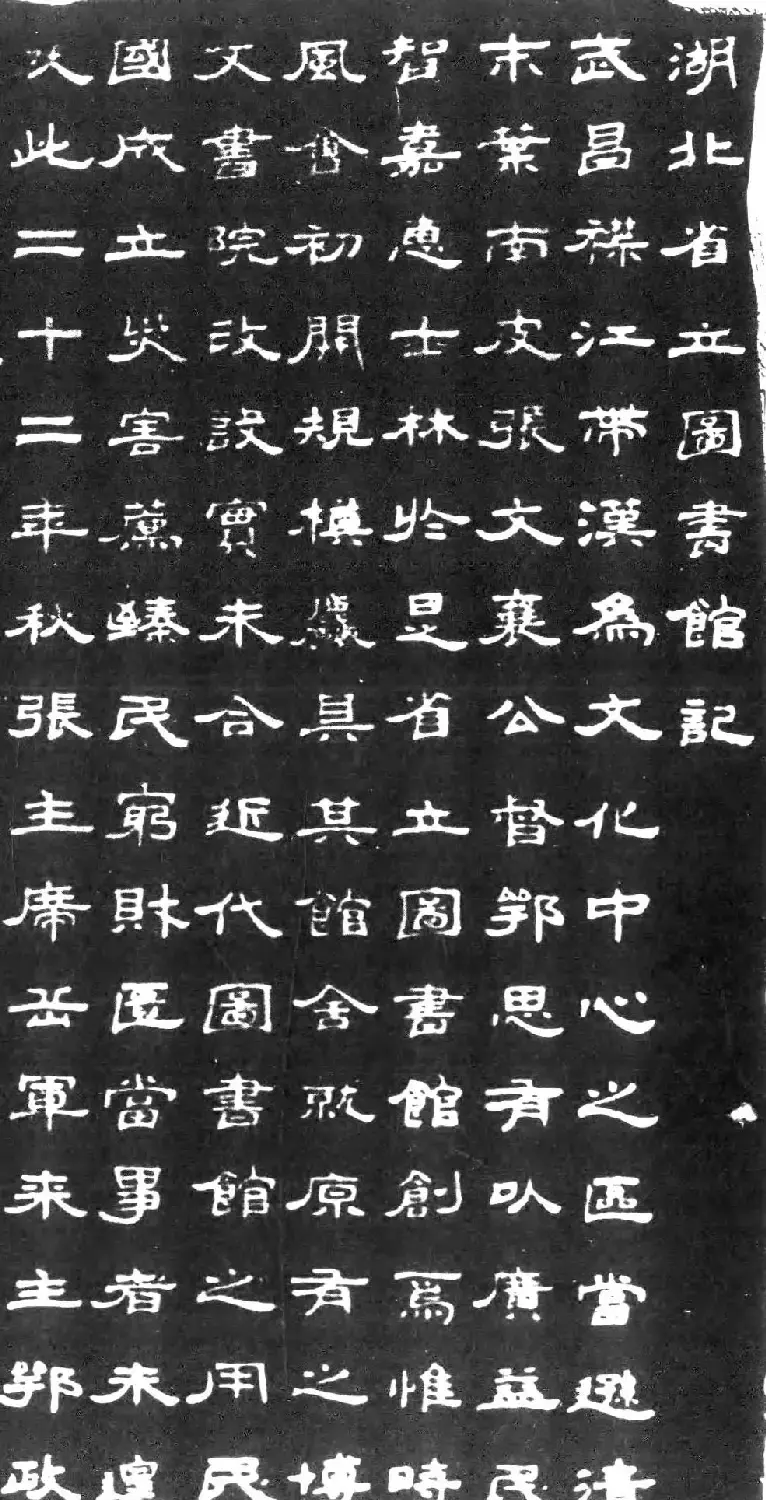 湖北省立圖書館記
武昌襟江帶漢為文化中心之區當遜清
末葉南皮張文襄公督鄂思有以廣益民
智嘉惠士林於是省立圖書館創焉惟時
風會初開規模麤具其館舍就原有之博
文書院改設實未合近代圖書館之用民
國成立災害薦臻民窮財匱當事者未遑
次此二十二年秋張主席岳軍来主鄂政